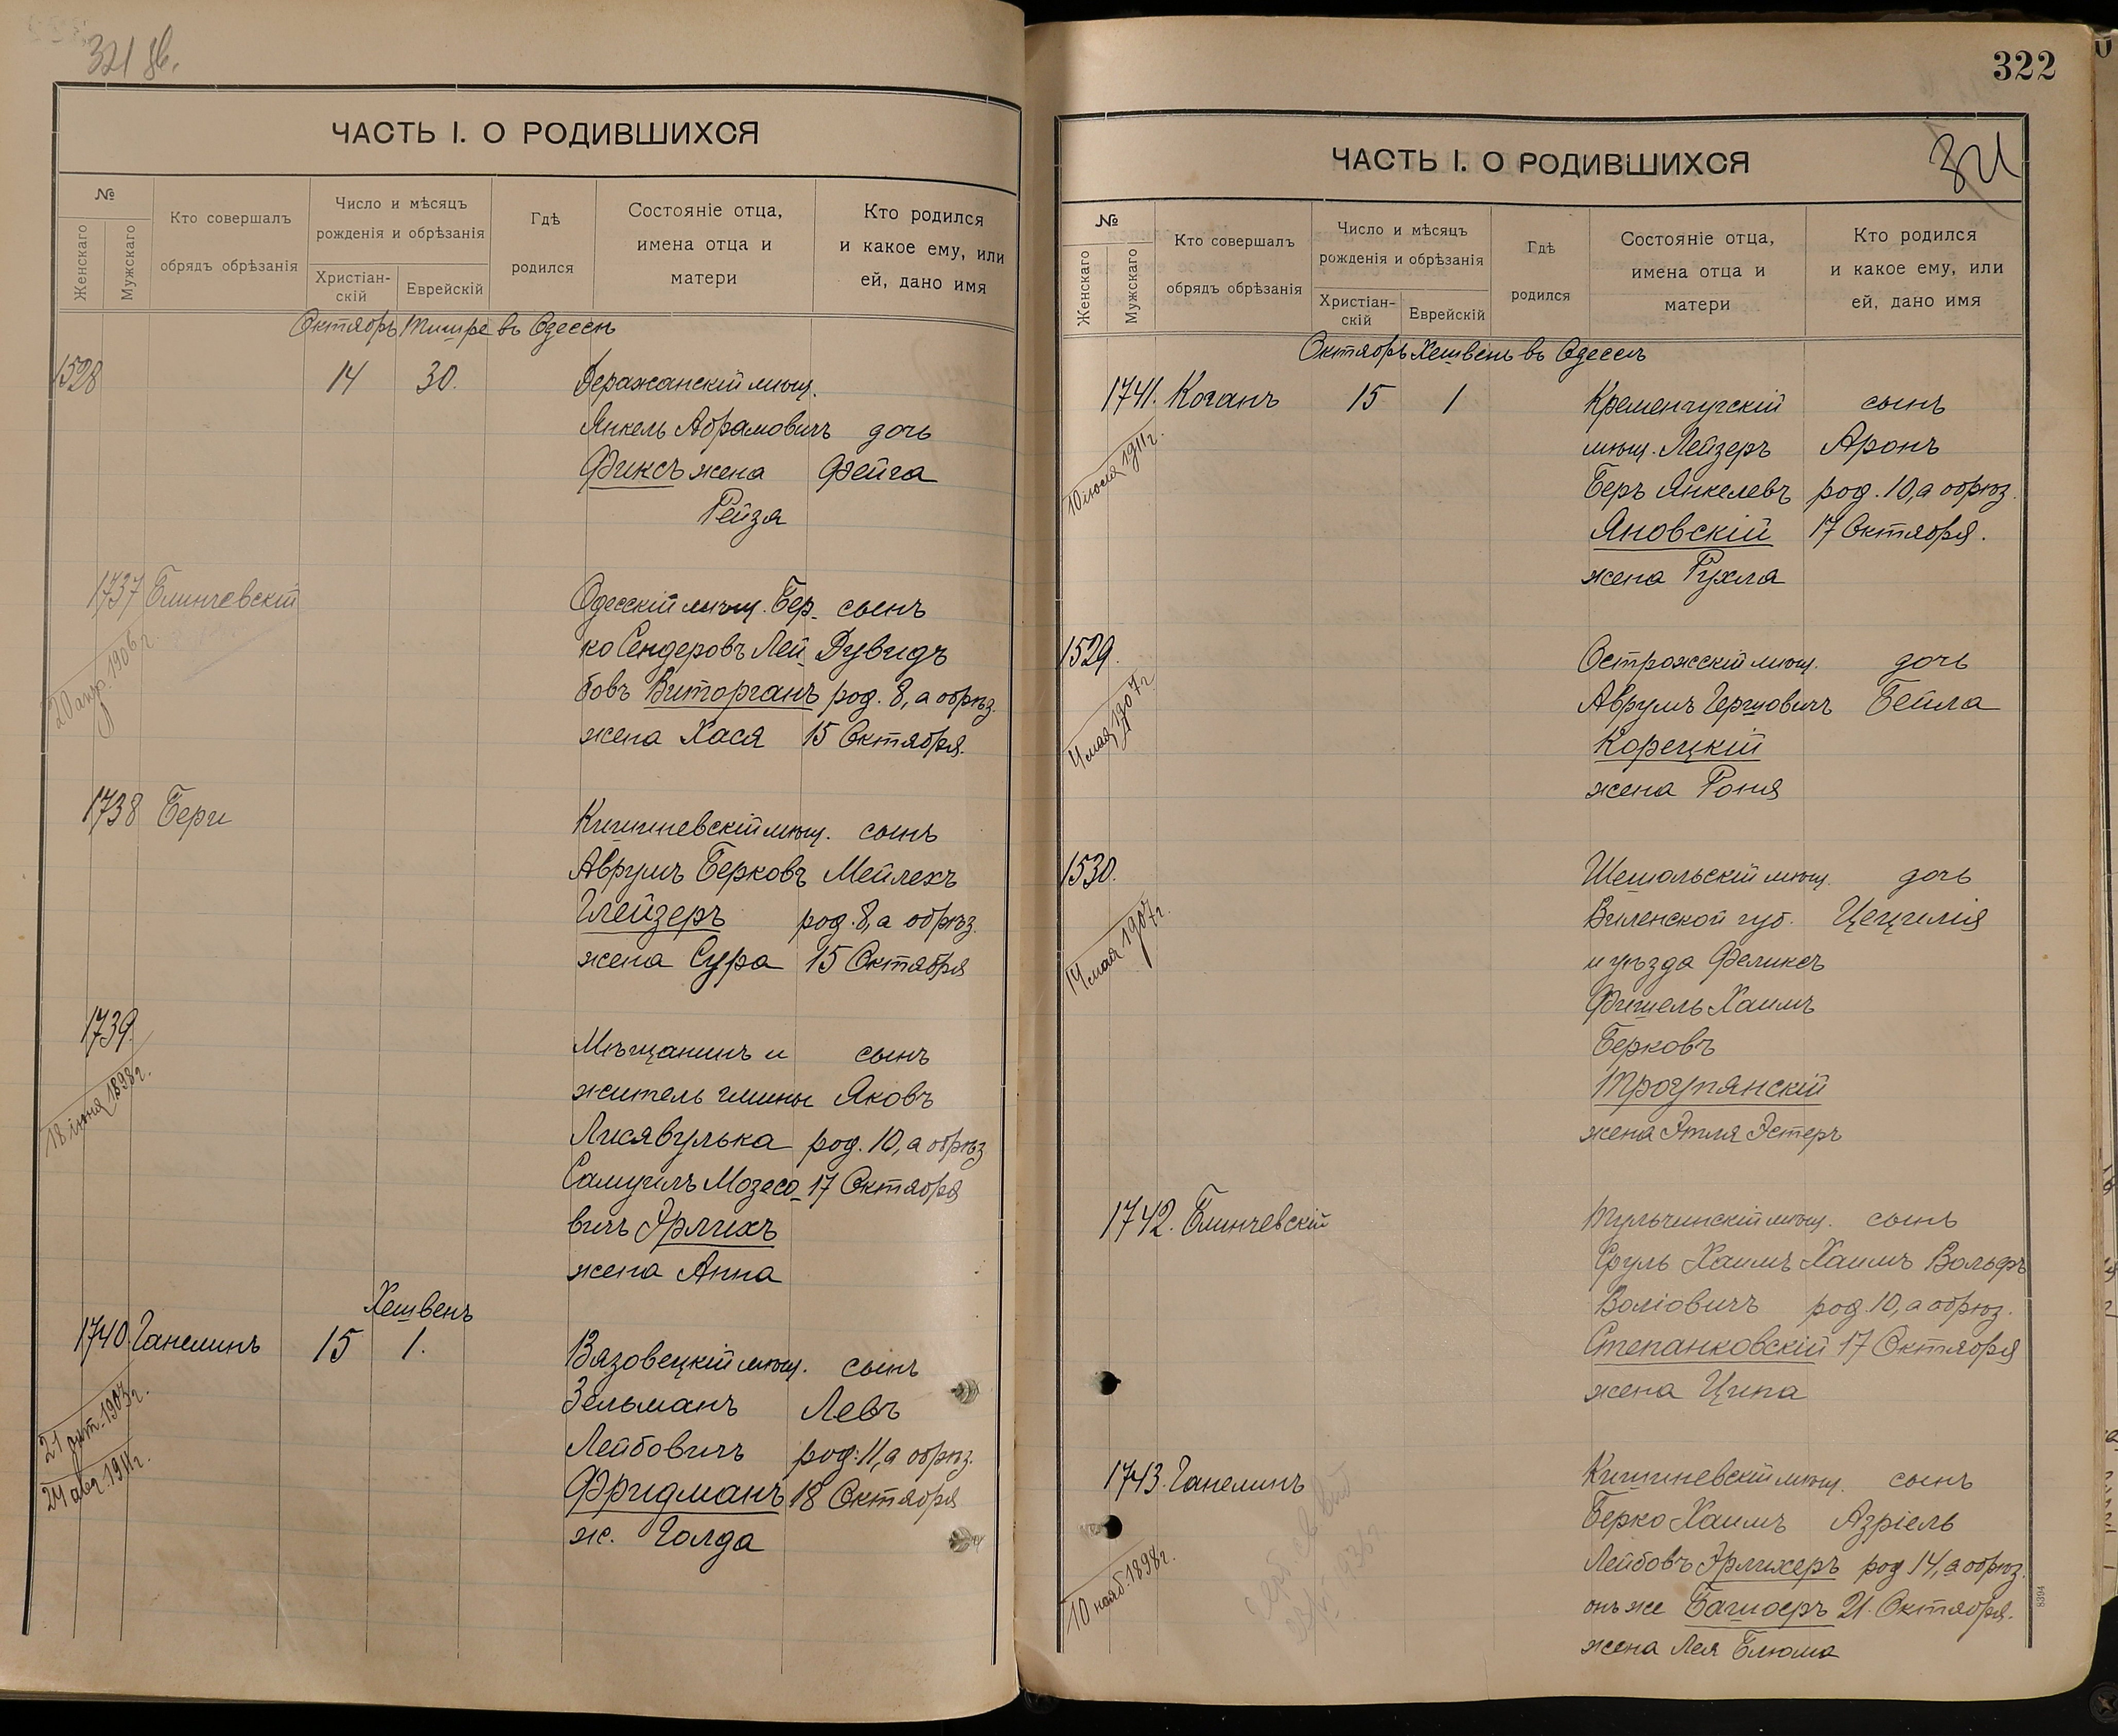 321 об.
ЧАСТЬ I. О РОДИВШИХСЯ
№
Женскаго
Мужскаго
Кто совершалъ
обрядъ обрѣзанія
Число и мѣсяцъ
рожденія и обрѣзанія
Христіан-
скій
Еврейскій
Гдѣ
родился
Состояніе отца,
имена отца и
матери
Кто родился
и какое ему, или
ей, дано имя
Октябрь Тишре въ Одессѣ
1528 14 30. Деражанскій мѣщ.
Янкель Абрамовичъ дочь
Фиксъ жена Фейга
Рейза
1737 Блинчевскій Одесскій мѣщ. Бер- сынъ
ко Сендеровъ Лей- Дувидъ
20 апр. 1906 г.
бовъ Виторганъ род. 8, а обрѣз.
жена Хася 15 Октября.
1738 Берг Кишиневскій мѣщ. сынъ
Аврумъ Берковъ Мейлехъ
Глейзеръ род. 8, а обрѣз.
жена Сура 15 Октября
1739. Мѣщанинъ и сынъ
18 іюня 1898 г.
житель гмины Яковъ
Лисявулька род. 10, а обрѣз
Самуилъ Мозесо- 17 Октября
вичъ Эрлихъ
жена Анна
Хешвень
1740. Ганелинъ 15 1. Вязовецкій мѣщ. сынъ
Зельманъ Левъ
21 окт. 1903 г.
Лейбовичъ род. 11, а обрѣз.
24 авг. 1911 г.
Фридманъ 18 Октября
ж. Голда
322
321
ЧАСТЬ I. О РОДИВШИХСЯ
№
Женскаго
Мужскаго
Кто совершалъ
обрядъ обрѣзанія
Число и мѣсяцъ
рожденія и обрѣзанія
Христіан-
скій
Еврейскій
Гдѣ
родился
Состояніе отца,
имена отца и
матери
Кто родился
и какое ему, или
ей, дано имя
Октябрь Хешвень въ Одессѣ
1741. Коганъ 15 1 Кременчугскій сынъ
мѣщ. Лейзеръ Аронъ
10 іюля 1911 г.
Беръ Янкелевъ род. 10, а обрѣз.
Яновскій 17 Октября.
жена Рухля
1529. Острожскій мѣщ. дочь
Аврумъ Гершовичъ Бейла
4 мая 1907 г.
Корецкій
жена Роня
1530. Шешольскій мѣщ. дочь
Виленской губ. Цецилія
14 мая 1907 г.
и уѣзда Феликсъ
Фишель Хаимъ
Берковъ
Троупянскій
жена Этля Эстеръ
1742. Блинчевскій Тульчинскій мѣщ. сынъ
Сруль Хаимъ Хаимъ Вольфъ
Воліовичъ род. 10, а обрѣз.
Степанковскій 17 Октября
жена Ципа
1743. Ганелинъ Кишиневскій мѣщ. сынъ
Берко Хаимъ Азріель
Лейбовъ Эрлихеръ род 14, а обрѣз.
10 нояб. 1898 г.
онъ же Багшоеръ 21. Октября.
жена Лея Блюма
8394